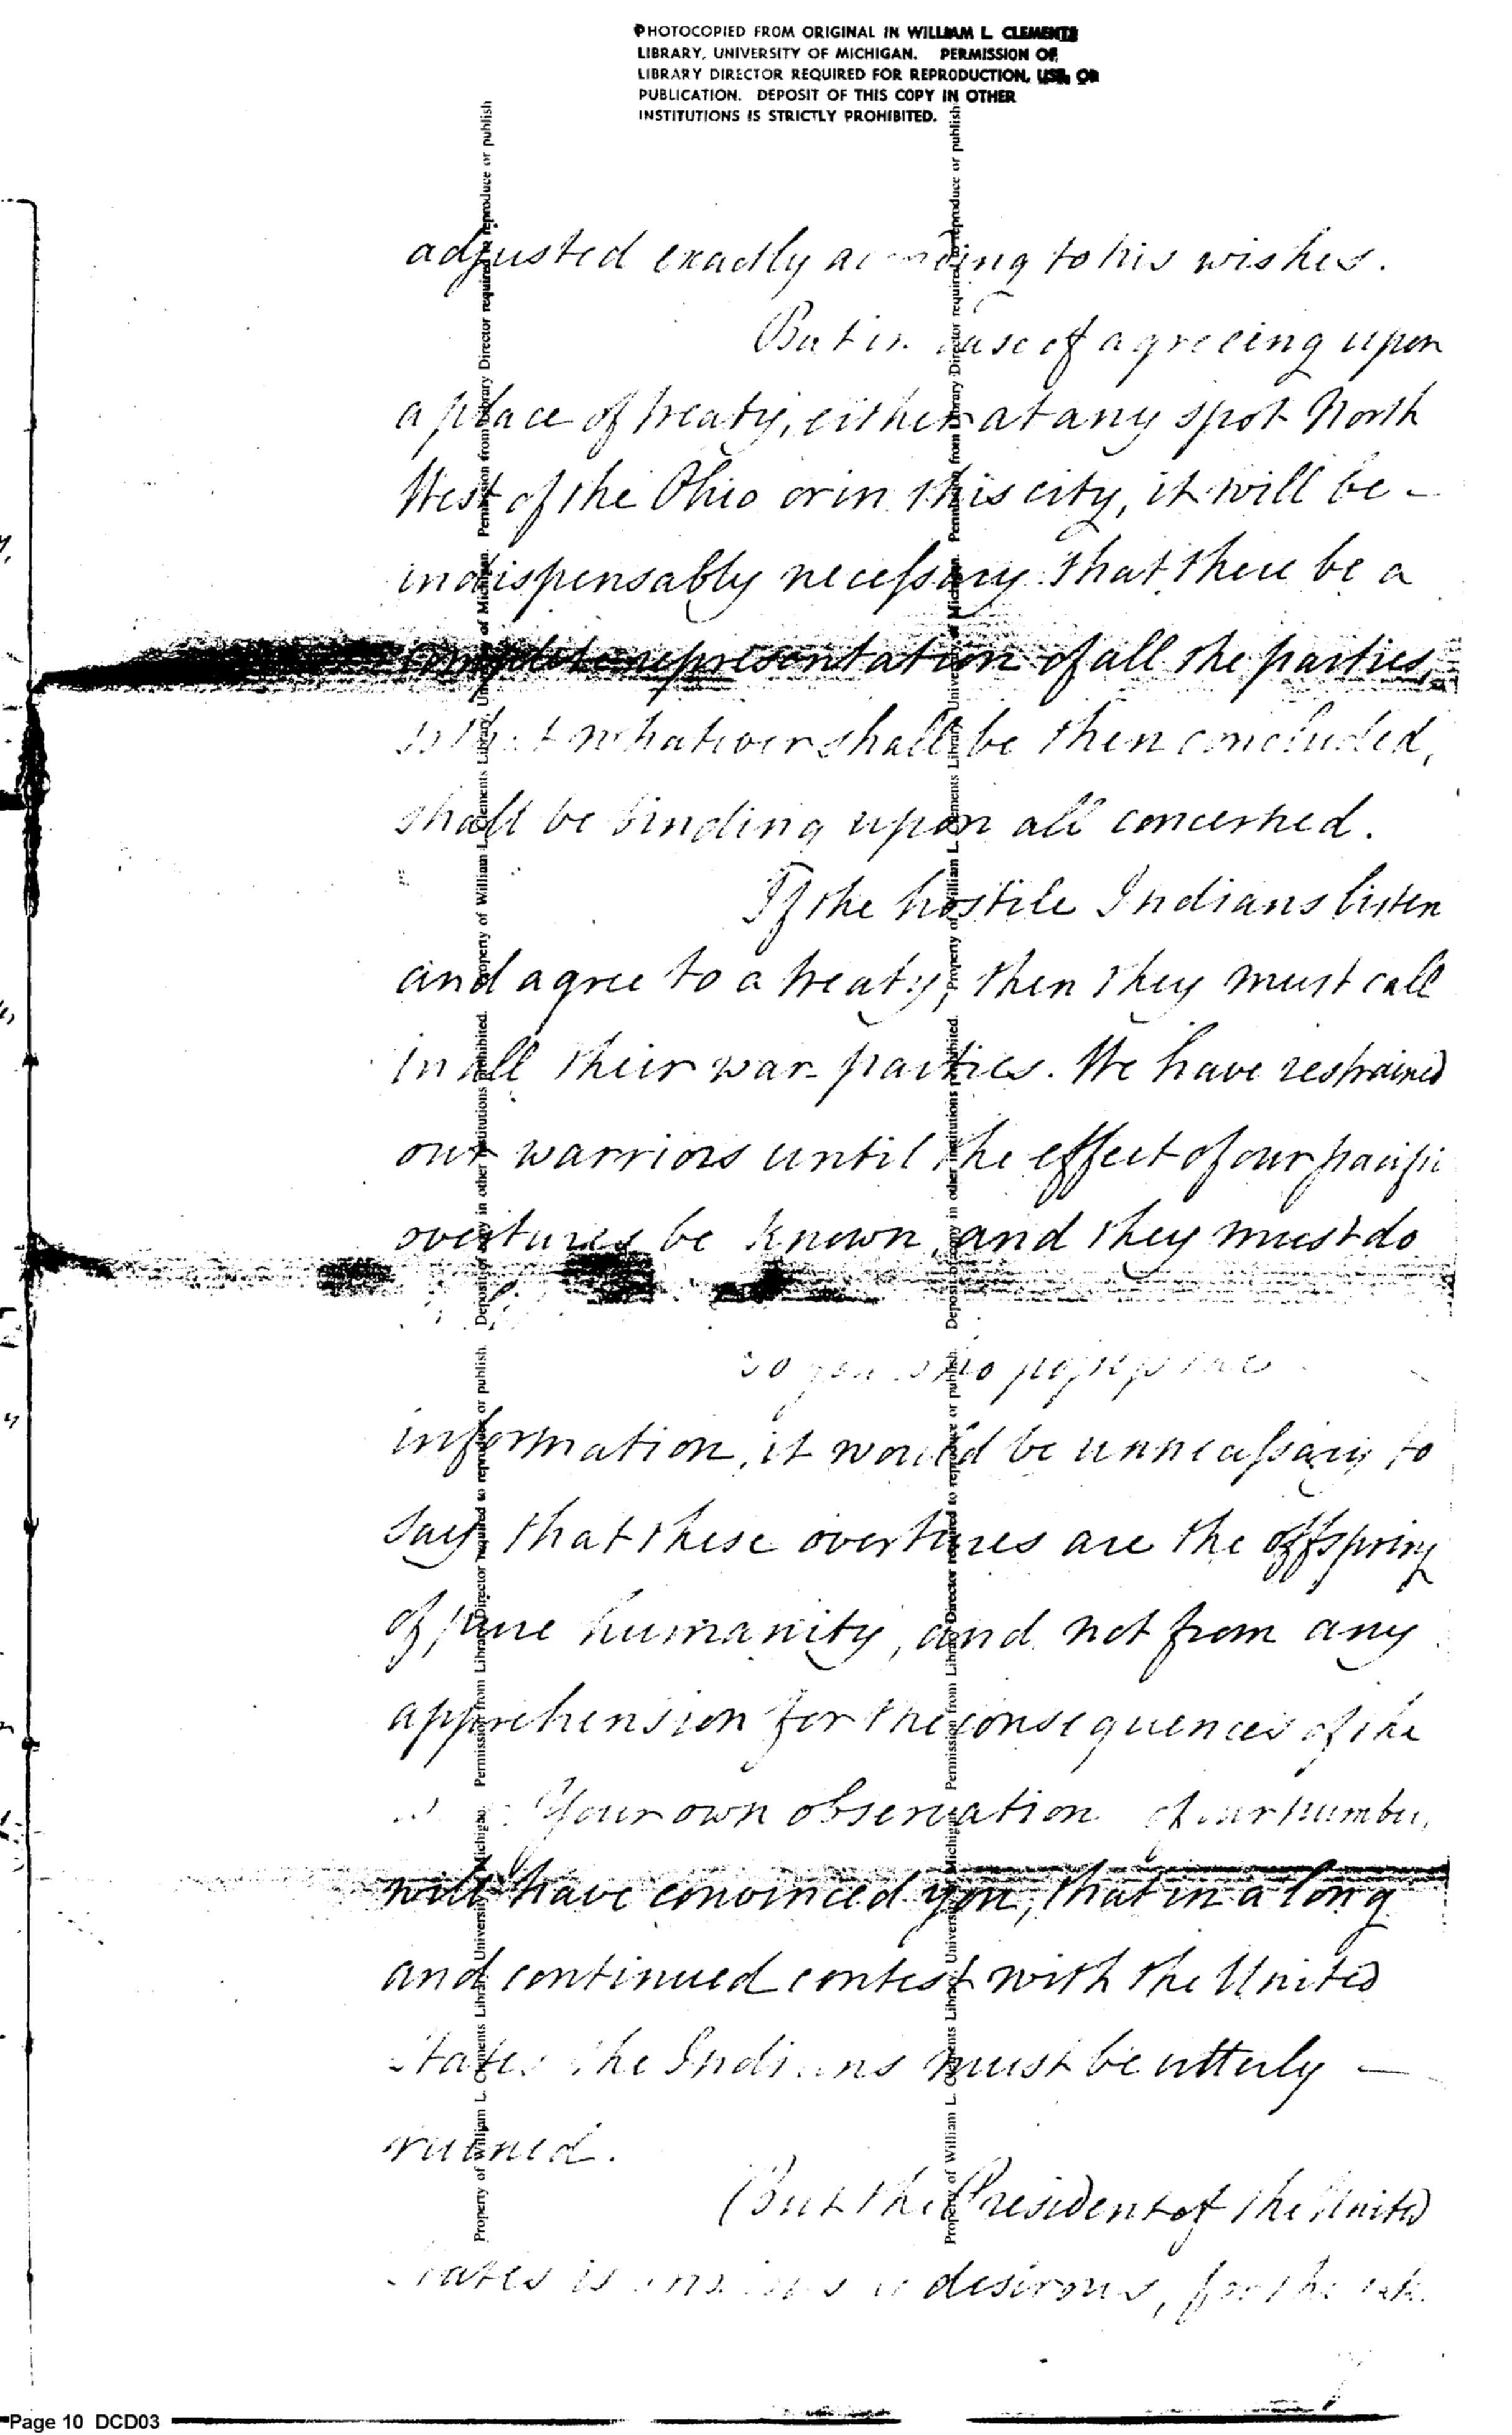 PHOTOCOPIED FROM ORIGINAL IN WILLIAM L. CLEMENTS
LIBRARY, UNIVERSITY OF MICHIGAN. PERMISSION OF
LIBRARY DIRECTOR REQUIRED FOR REPRODUCTION, USE, OR
PUBLICATION. DEPOSIT OF THIS COPY IN OTHER
INSTITUTIONS IS STRICTLY PROHIBITED.
adjusted exactly according to his wishes.
But in case of agreeing upon
a place of treaty, either at any spot North
West of the Ohio or in this city, it will be –
indispensably necessary that there be a
complete representation of all the parties,
so that whatever shall be then concluded,
shall be binding upon all concerned.
If the hostile Indians listen
and agree to a treaty, then they must call
in all their war parties. We have restrained
our warriors until the effect of our pacific
overtures be known, and they must do
To you who possess the
information, it would be unnecessary to
say that these overtures are the offspring
of pure humanity, and not from any
apprehension for the consequences of the
Your own observation of our number,
will have convinced you, that in a long
and continued contest with the United
States the Indians must be utterly –
ruined.
But the President of the United
States is desirous, for the sake
Property of William L. Clements Library, University of Michigan. Permission from Library Director required to reproduce or publish. Deposit of copy in other institutions prohibited.
Property of William L. Clements Library, University of Michigan. Permission from Library Director required to reproduce or publish
Property of William L. Clements Library, University of Michigan. Permission from Library Director required to reproduce or publish. Deposit of copy in other institutions prohibited.
Property of William L. Clements Library, University of Michigan. Permission from Library Director required to reproduce or publish
Page 10 DCD03